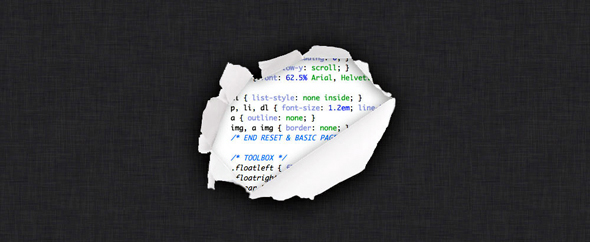 low-y: scroll; }
font: 62.5% Arial, Helvet
{ list-style: none inside; }
p, li, dl { font-size: 1.2em; line
a { outline: none; }
img, a img { border: none; }
/* END RESET & BASIC PAG
/* TOOLBOX */
.floatleft {
.floatright